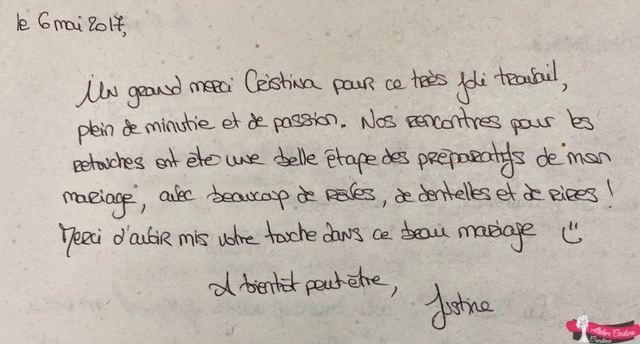 le 6 mai 2017,
Un grand merci Cristina pour ce très joli travail,
plein de minutie et de passion. Nos rencontres pour les
retouches ont été une belle étape des préparatifs de mon
mariage, avec beaucoup de perles, de dentelles et de rires !
Merci d'avoir mis votre touche dans ce beau mariage
A bientôt peut-être,
Justine
Atelier Couture